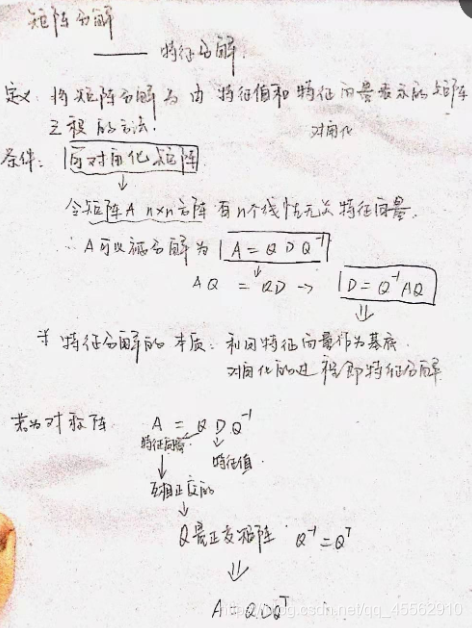 矩阵分解
—— 特征分解.
定义: 将矩阵分解为由特征值和特征向量表示的矩阵
之积的方法.
对角化
条件: 可对角化矩阵
↓
令矩阵A n×n方阵 有n个线性无关特征向量.
∴ A可以被分解为 A = Q D Q⁻¹
↓
AQ = QD → D = Q⁻¹AQ
⇓
* 特征分解的本质: 利用特征向量作为基底.
对角化的过程即特征分解
若为对称阵 A = Q D Q⁻¹
特征向量 特征值.
互相正交的
Q是正交矩阵 Q⁻¹ = Qᵀ
⇓
A = QDQᵀ
https://blog.csdn.net/qq_45562910